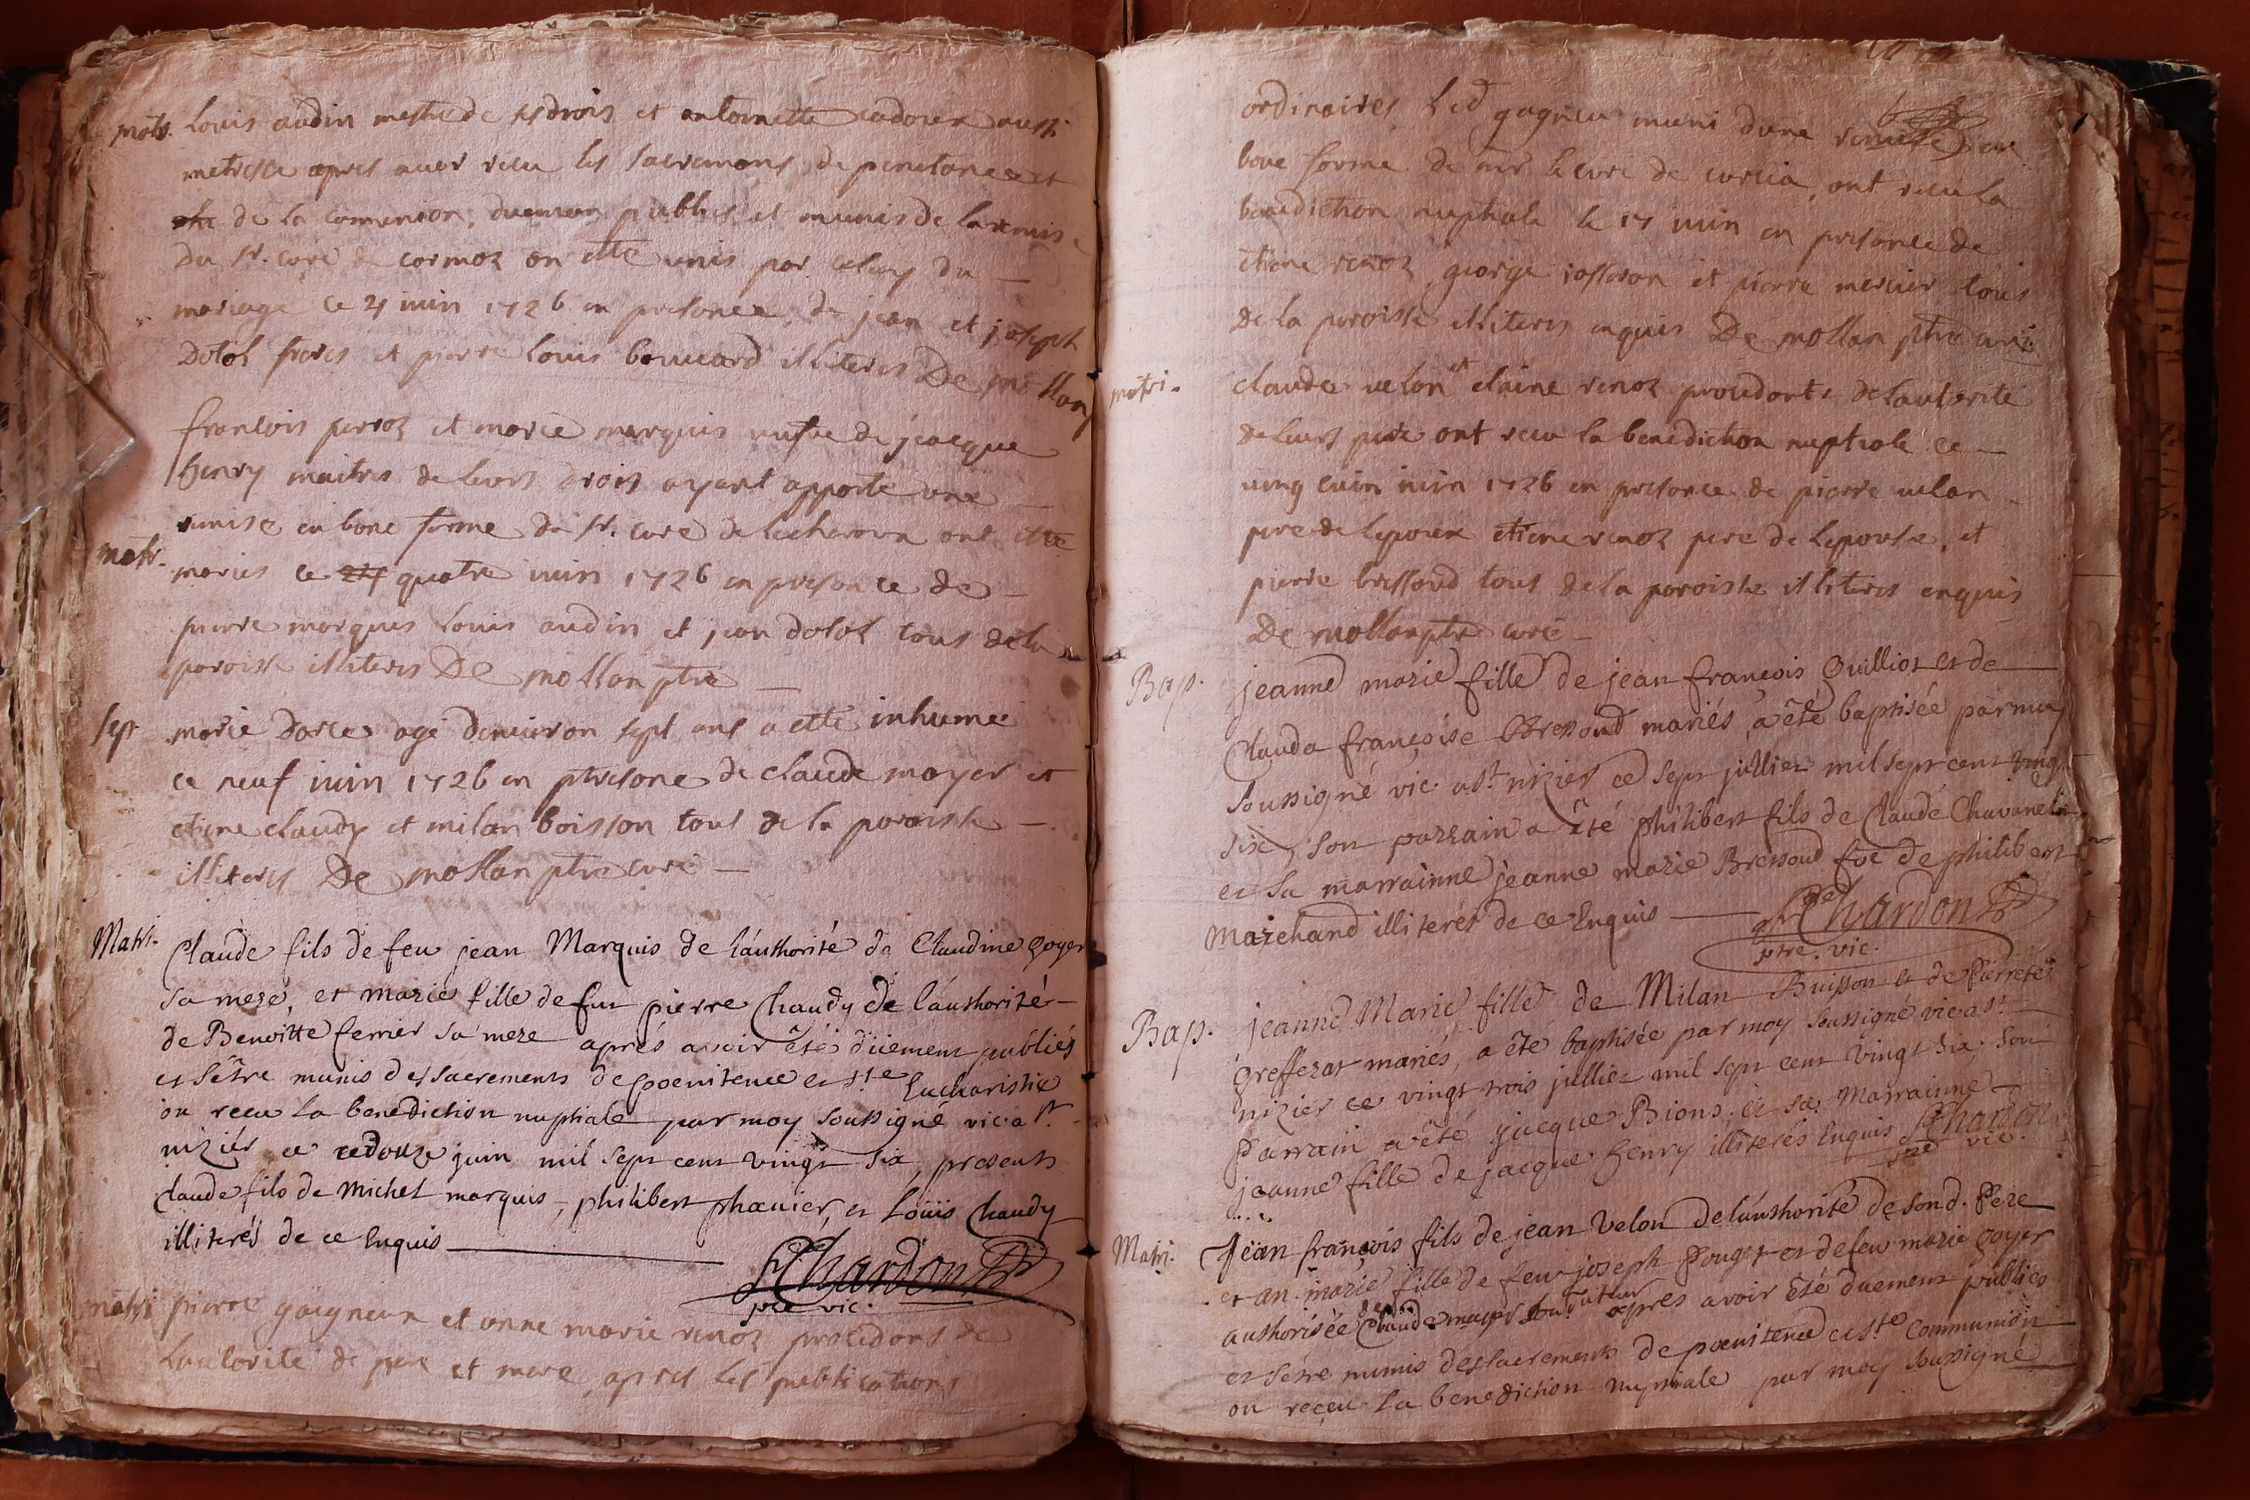 matr. Louis audin mestre de ses drois et antoinette cadoux aussi
metresse apres auer receu les sacremens de penetance et
de la comunion, duemen publies et munis de la remise
du sr. curé de cormoz on etté unis par celuy du
mariage ce 4 iuin 1726 en presance de jean et joseph
Doloz freres et pierre louis bouuard illiteres De mollan
françois perroz et marie marquis uefue de jacque
henry maitres de leurs drois ayant apporté une
remise en bone forme du sr. curé de ont etté
matr. mariés ce quatre iuin 1726 en presance de
pierre marquis Louis audin et jean doloz tous de la
paroisse illiteres De mollan ptre
sep marie darces agé denuiron sept ans a etté inhumeé
ce neuf iuin 1726 en presone de claude moyer et
etiene claudy et milan boisson tous de la paroisse
illiteres De mollan ptre curé
Matri. Claude fils de feu jean Marquis de l'authorité de Claudine goyer
sa mere, et marie fille de feu pierre Chaudy de l'authorité
de Benoitte ferrier sa mere aprés avoir été düement publiés
et s'être munis des sacrements de poenitence et ste Eucharistie
on recu la benediction nuptiale par moy soussigné vic a st
nizier ce douze juin mil sept cent vingt six, presents
Claude fils de Michel marquis, philibert phanier, et Loüis Chaudy
illiterés de ce Enquis
Chardon
ptre vic.
matri pierre gaigneux et anne marie renoz procedans de
lautorité de pere et mere, apres les publications
ordinaires, led gagneu muni dune remise en
bone forme de mr le curé de curcia, ont receu la
benediction nuptiale le 17 iuin en presance de
etiene renoz, george iosseron et pierre mercier tous
de la paroisse illiteres enquis De mollan ptre curé
matri. claude uelon et claire renoz procedants de lautorité
de leurs pere ont receu la benediction nuptiale ce
uing iuin 1726 en presance de pierre uelon
pere de lepoux etiene renoz pere de lepouse, et
pierre bressoud tous de la paroisse illiteres enquis
De mollan ptre curé
Bap. jeanne marie fille de jean françois Guilliot et de
Claude françoise Bressoud mariés, a été baptisée par moy
soussigné vic. a st. nizier ce sept julliet mil sept cent vingt
six, son parrain a été philibert fils de Claude Chavanel
et sa marrainne jeanne marie Bressoud fe de philibert
Marchand illiterés de ce Enquis
Chardon
ptre. vic.
Bap. jeanne Marie fille de Milan Buisson et de Pierrete
Greffezat mariés, a été baptisée par moy soussigné vic a st.
nizier ce vingt trois julliet mil sept cent vingt six. son
Parrain a été jacque Pions et sa Marrainne
jeanne fille de jacque henry illiterés Enquis Chardon
ptre vic.
Matri. Jëan françois fils de jean Velon de l'authorité de sond. Pere
et an. marie fille de feu joseph Pouget et de feu marie goyer
authorisée de Claude mayer son tuteur apres avoir été duement publiés
et s'étre munis des sacrements de poenitence et ste communion
on reçeu la benediction nuptiale par moy soussigné